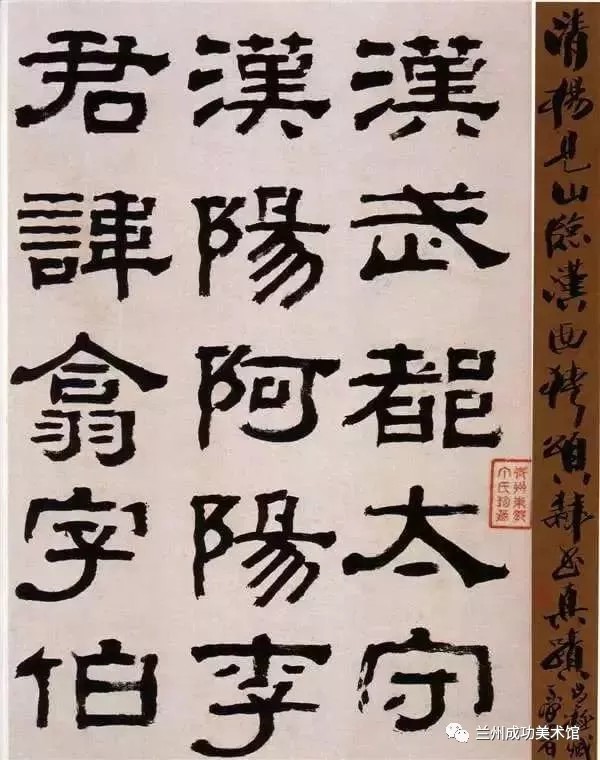 漢武都太守
漢陽阿陽李
君諱翕字伯
清楊見山臨漢西狹頌隸書真蹟
兰州成功美术馆